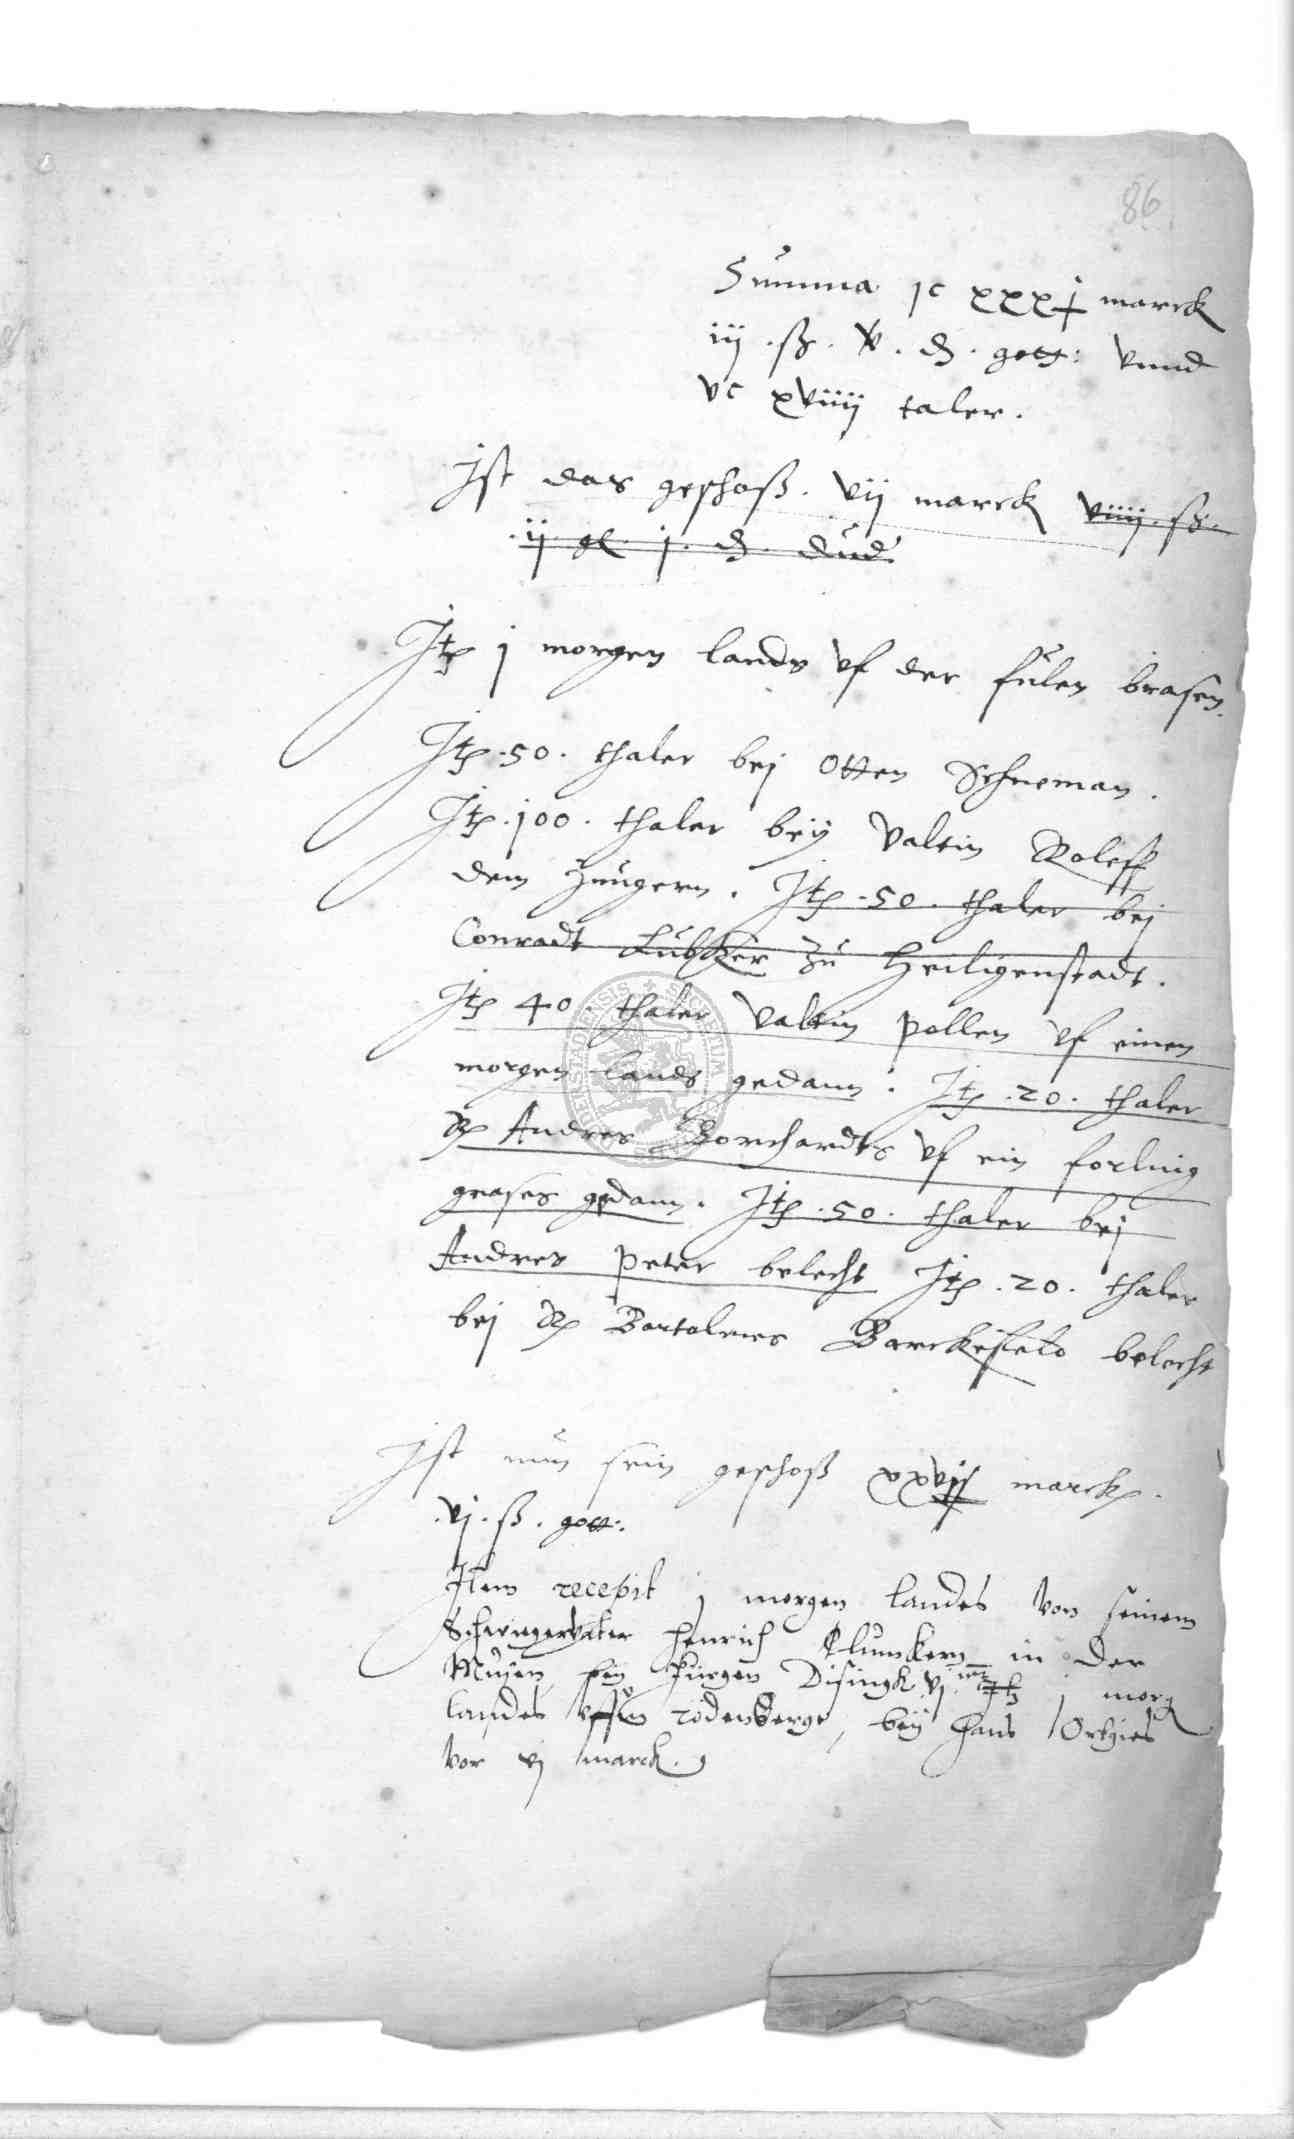 86
Summa jc xxxj marck
iij . ß . v . d . gott: vnnd
vc xviiij taler.
Ist das geschoß . vij marck viiij . ß .
. ij . gl . j . d . dud
Itp j morgen lands vf der fulen brasen.
Itp . 50 . thaler bej Otten Schneman .
Itp . 100 . thaler beÿ Valtin Roleff
dem Jungern . Itp . 50 . thaler bej
Conradt Lubker zu Heiligenstadt .
Itp 40 . thaler Valtin pollen vf einen
morgen lands gedann . Itp . 20 . thaler
Andres Borchardts vf ein forling
grases gedann . Itp . 50 . thaler bej
Andres peter belecht Itp . 20 . thaler
bej Bartolmes Barckefeld belecht
Ist nun sein geschoß marck .
. vj . ß . gott:.
Item recepit j morgen landes von seinem
Schwiegervater Henrich Klunckern in der
Jurgen Disingk vj j morg
landes vffm rodenberge, beÿ Hans Ortgies
vor vj marck .